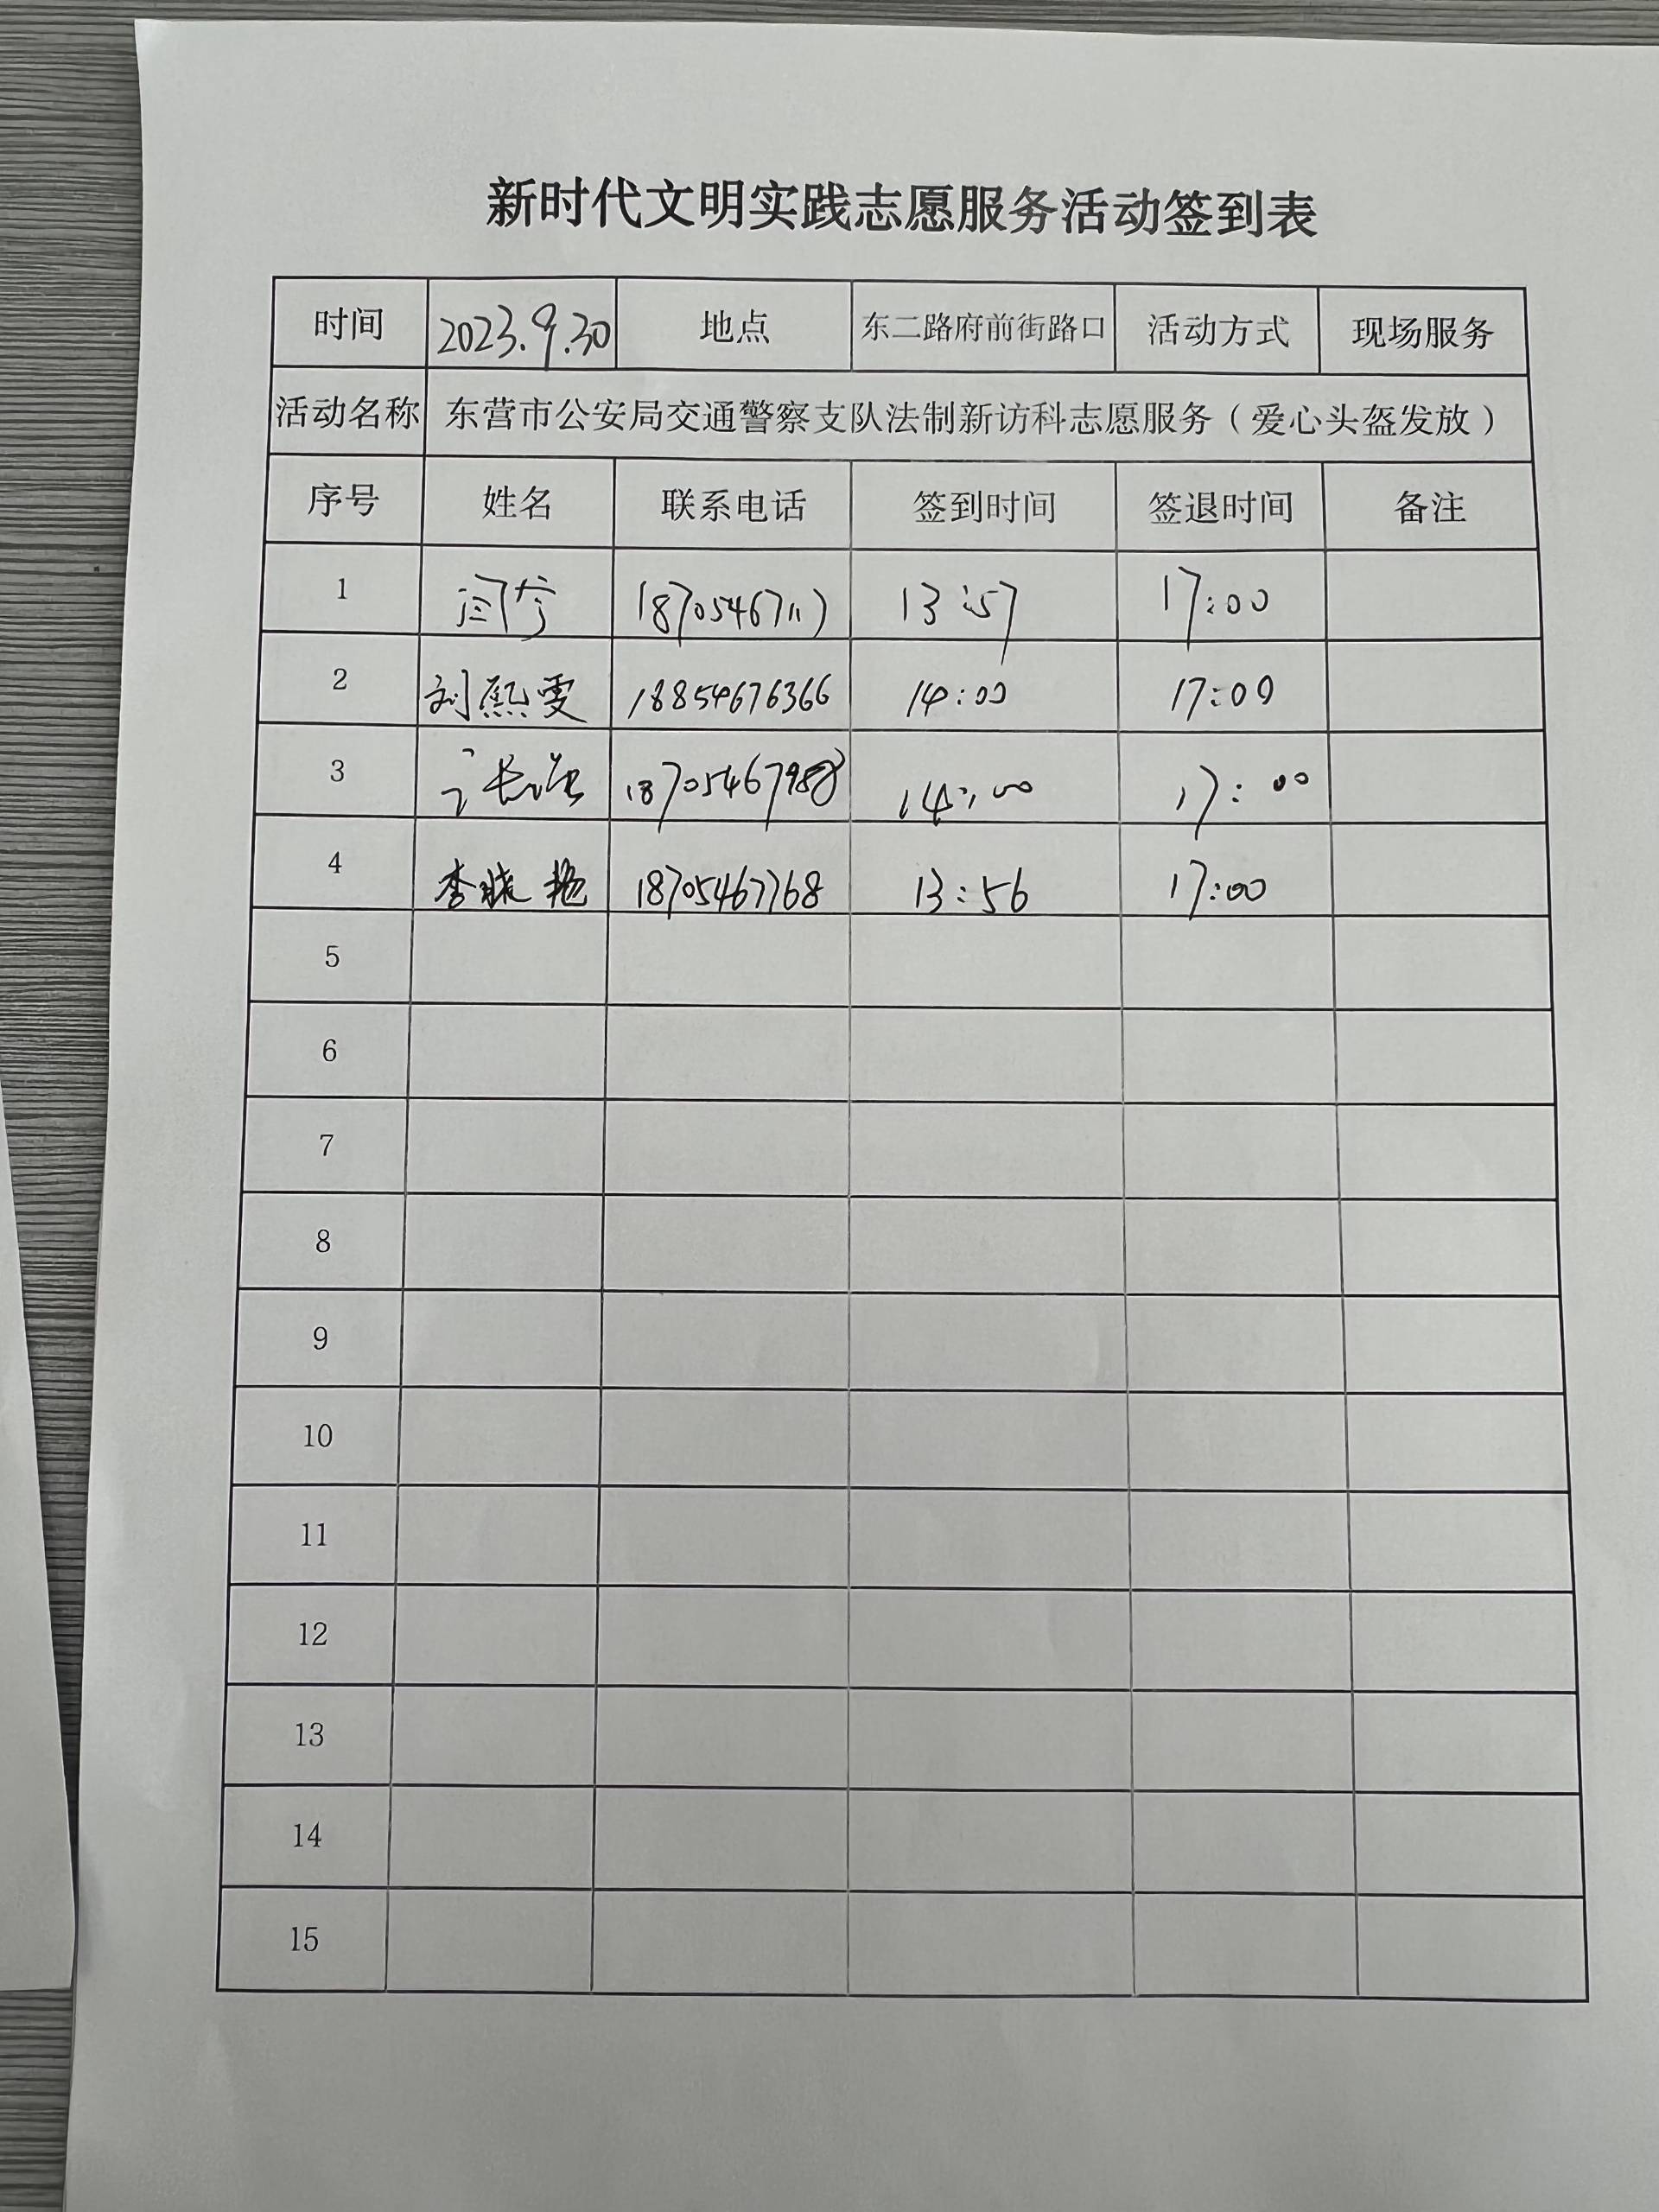 新时代文明实践志愿服务活动签到表
时间 2023.9.30 地点 东二路府前街路口 活动方式 现场服务
活动名称 东营市公安局交通警察支队法制新访科志愿服务（爱心头盔发放）
序号 姓名 联系电话 签到时间 签退时间 备注
1 13:57 17:00
2 刘熙雯 18854676366 14:00 17:00
3 18705467988 14:00 17:00
4 李晓艳 18705467768 13:56 17:00
5
6
7
8
9
10
11
12
13
14
15